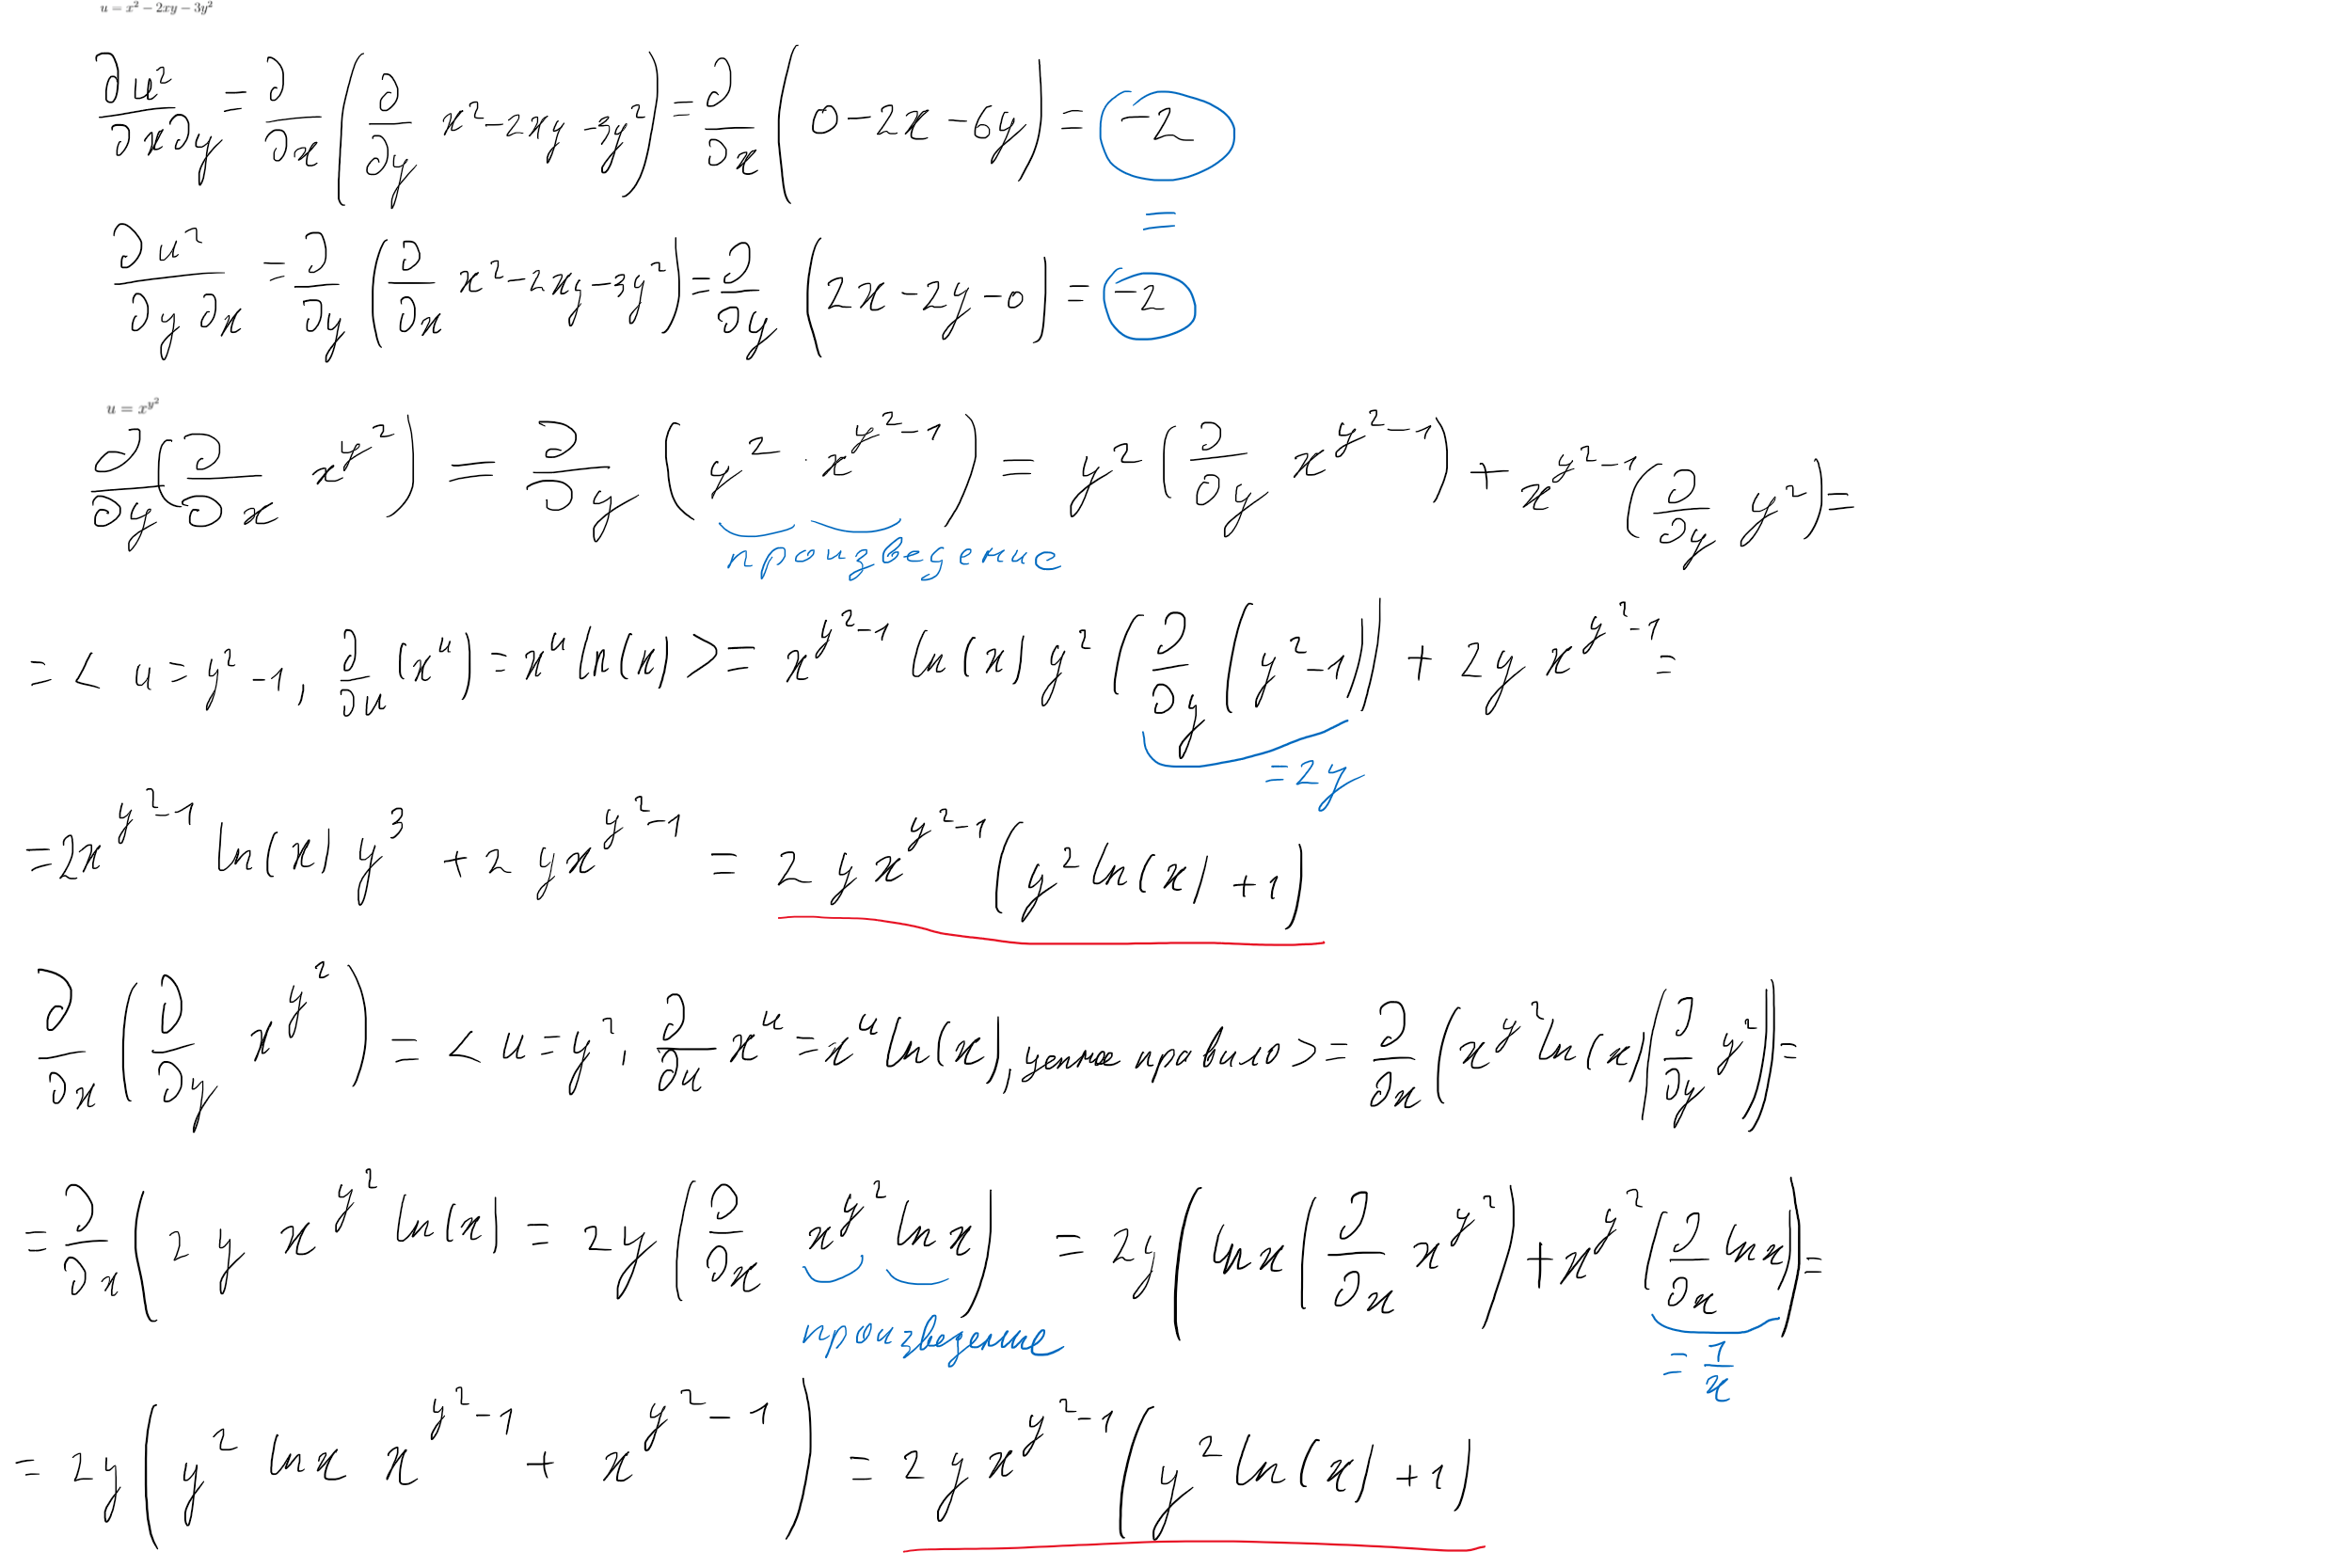 u = x² − 2xy − 3y²
∂u²/∂x∂y = ∂/∂x (∂/∂y x² − 2xy − 3y²) = ∂/∂x (0 − 2x − 6y) = −2
=
∂u²/∂y∂x = ∂/∂y (∂/∂x x² − 2xy − 3y²) = ∂/∂y (2x − 2y − 0) = −2
u = x^{y²}
∂/∂y (∂/∂x x^{y²}) = ∂/∂y (y² · x^{y²−1}) = y² (∂/∂y x^{y²−1}) + x^{y²−1} (∂/∂y y²) =
произведение
= < u = y² − 1, ∂/∂u (x^u) = x^u ln(x) > = x^{y²−1} ln(x) y² (∂/∂y (y² − 1)) + 2y x^{y²−1} =
= 2y
= 2x^{y²−1} ln(x) y³ + 2yx^{y²−1} = 2yx^{y²−1} (y² ln(x) + 1)
∂/∂x (∂/∂y x^{y²}) = < u = y², ∂/∂u x^u = x^u ln(x), цепное правило > = ∂/∂x (x^{y²} ln(x) (∂/∂y y²)) =
= ∂/∂x (2y x^{y²} ln(x) = 2y (∂/∂x x^{y²} ln x) = 2y (ln x (∂/∂x x^{y²}) + x^{y²} (∂/∂x ln x)) =
произведение
= 1/x
= 2y (y² ln x x^{y²−1} + x^{y²−1}) = 2yx^{y²−1} (y² ln(x) + 1)